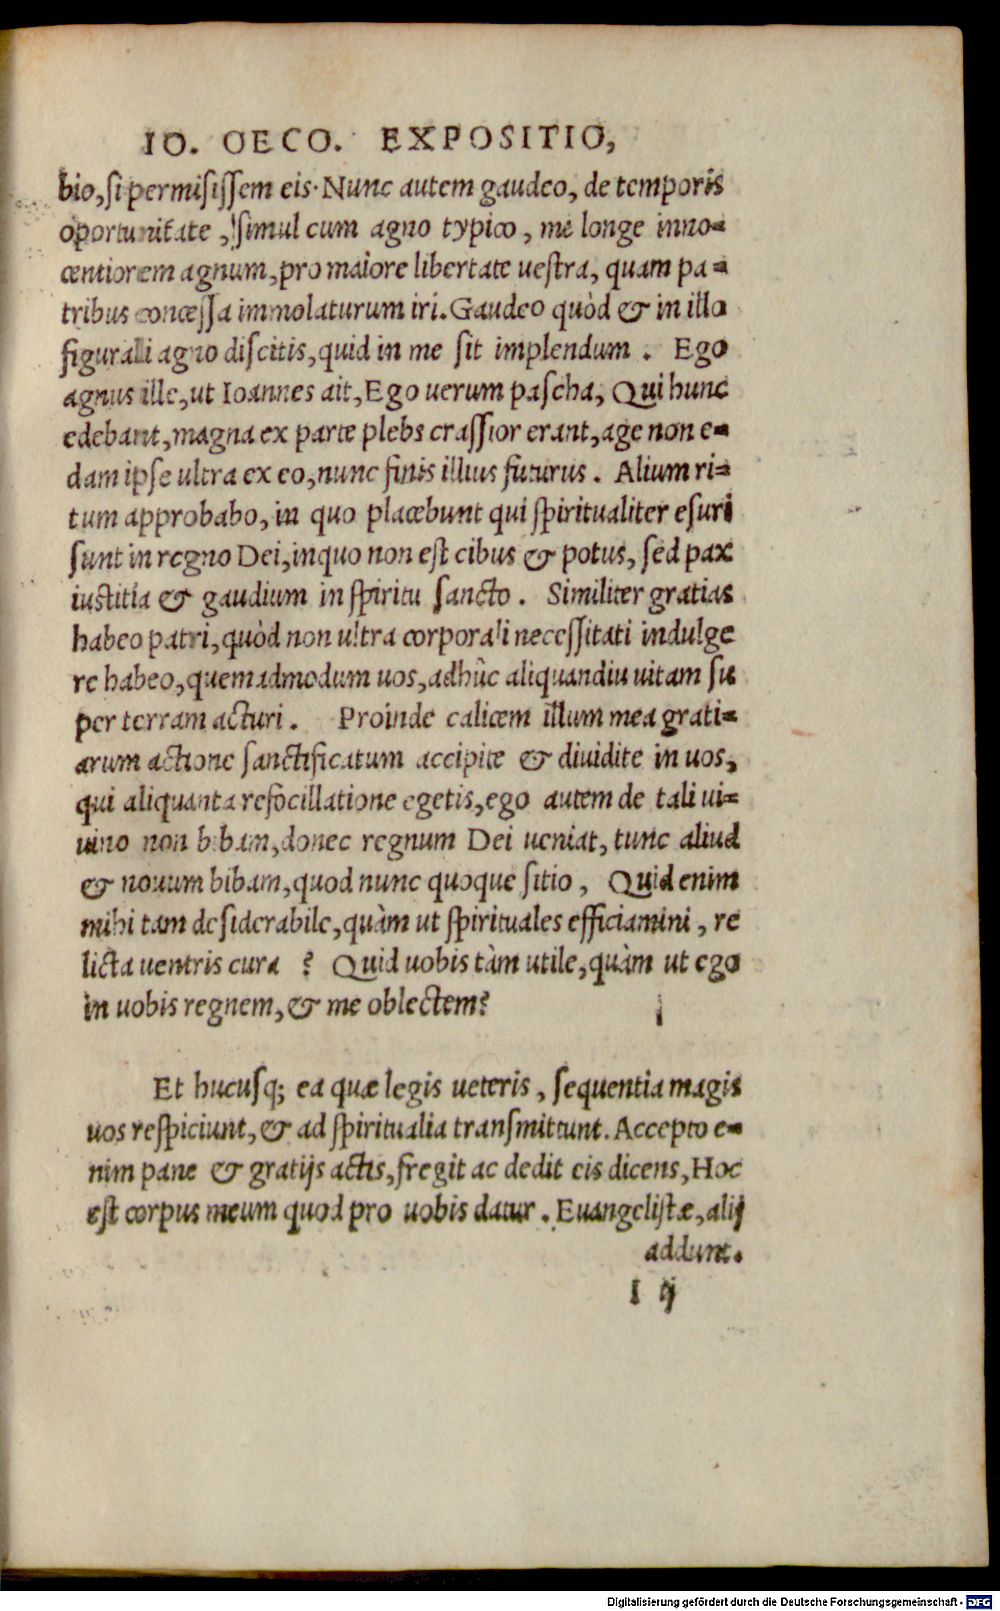 IO. OECO. EXPOSITIO,
bio, si permisissem eis. Nunc autem gaudeo, de temporis
oportunitate, simul cum agno typico, me longe inno-
centiorem agnum, pro maiore libertate uestra, quam pa-
tribus concessa immolaturum iri. Gaudeo quòd & in illo
figurali agno discitis, quid in me sit implendum. Ego
agnus ille, ut Ioannes ait, Ego uerum pascha, Qui hunc
edebant, magna ex parte plebs crassior erant, age non e-
dam ipse ultra ex eo, nunc finis illius futurus. Alium ri-
tum approbabo, in quo placebunt qui spiritualiter esuri
sunt in regno Dei, in quo non est cibus & potus, sed pax
iustitia & gaudium in spiritu sancto. Similiter gratias
habeo patri, quòd non ultra corporali necessitati indulge
re habeo, quemadmodum uos, adhûc aliquandiu uitam su
per terram acturi. Proinde calicem illum mea grati-
arum actione sanctificatum accipite & diuidite in uos,
qui aliquanta refocillatione egetis, ego autem de tali ui-
uino non bibam, donec regnum Dei ueniat, tunc aliud
& nouum bibam, quod nunc quoque sitio, Quid enim
mihi tam desiderabile, quàm ut spirituales efficiamini, re
licta uentris cura ? Quid uobis tàm utile, quàm ut ego
in uobis regnem, & me oblectem?
Et hucusq; ea quæ legis ueteris, sequentia magis
uos respiciunt, & ad spiritualia transmittunt. Accepto e-
nim pane & gratijs actis, fregit ac dedit eis dicens, Hoc
est corpus meum quod pro uobis datur. Euangelistæ, alij
addunt.
I ij
Digitalisierung gefördert durch die Deutsche Forschungsgemeinschaft - DFG